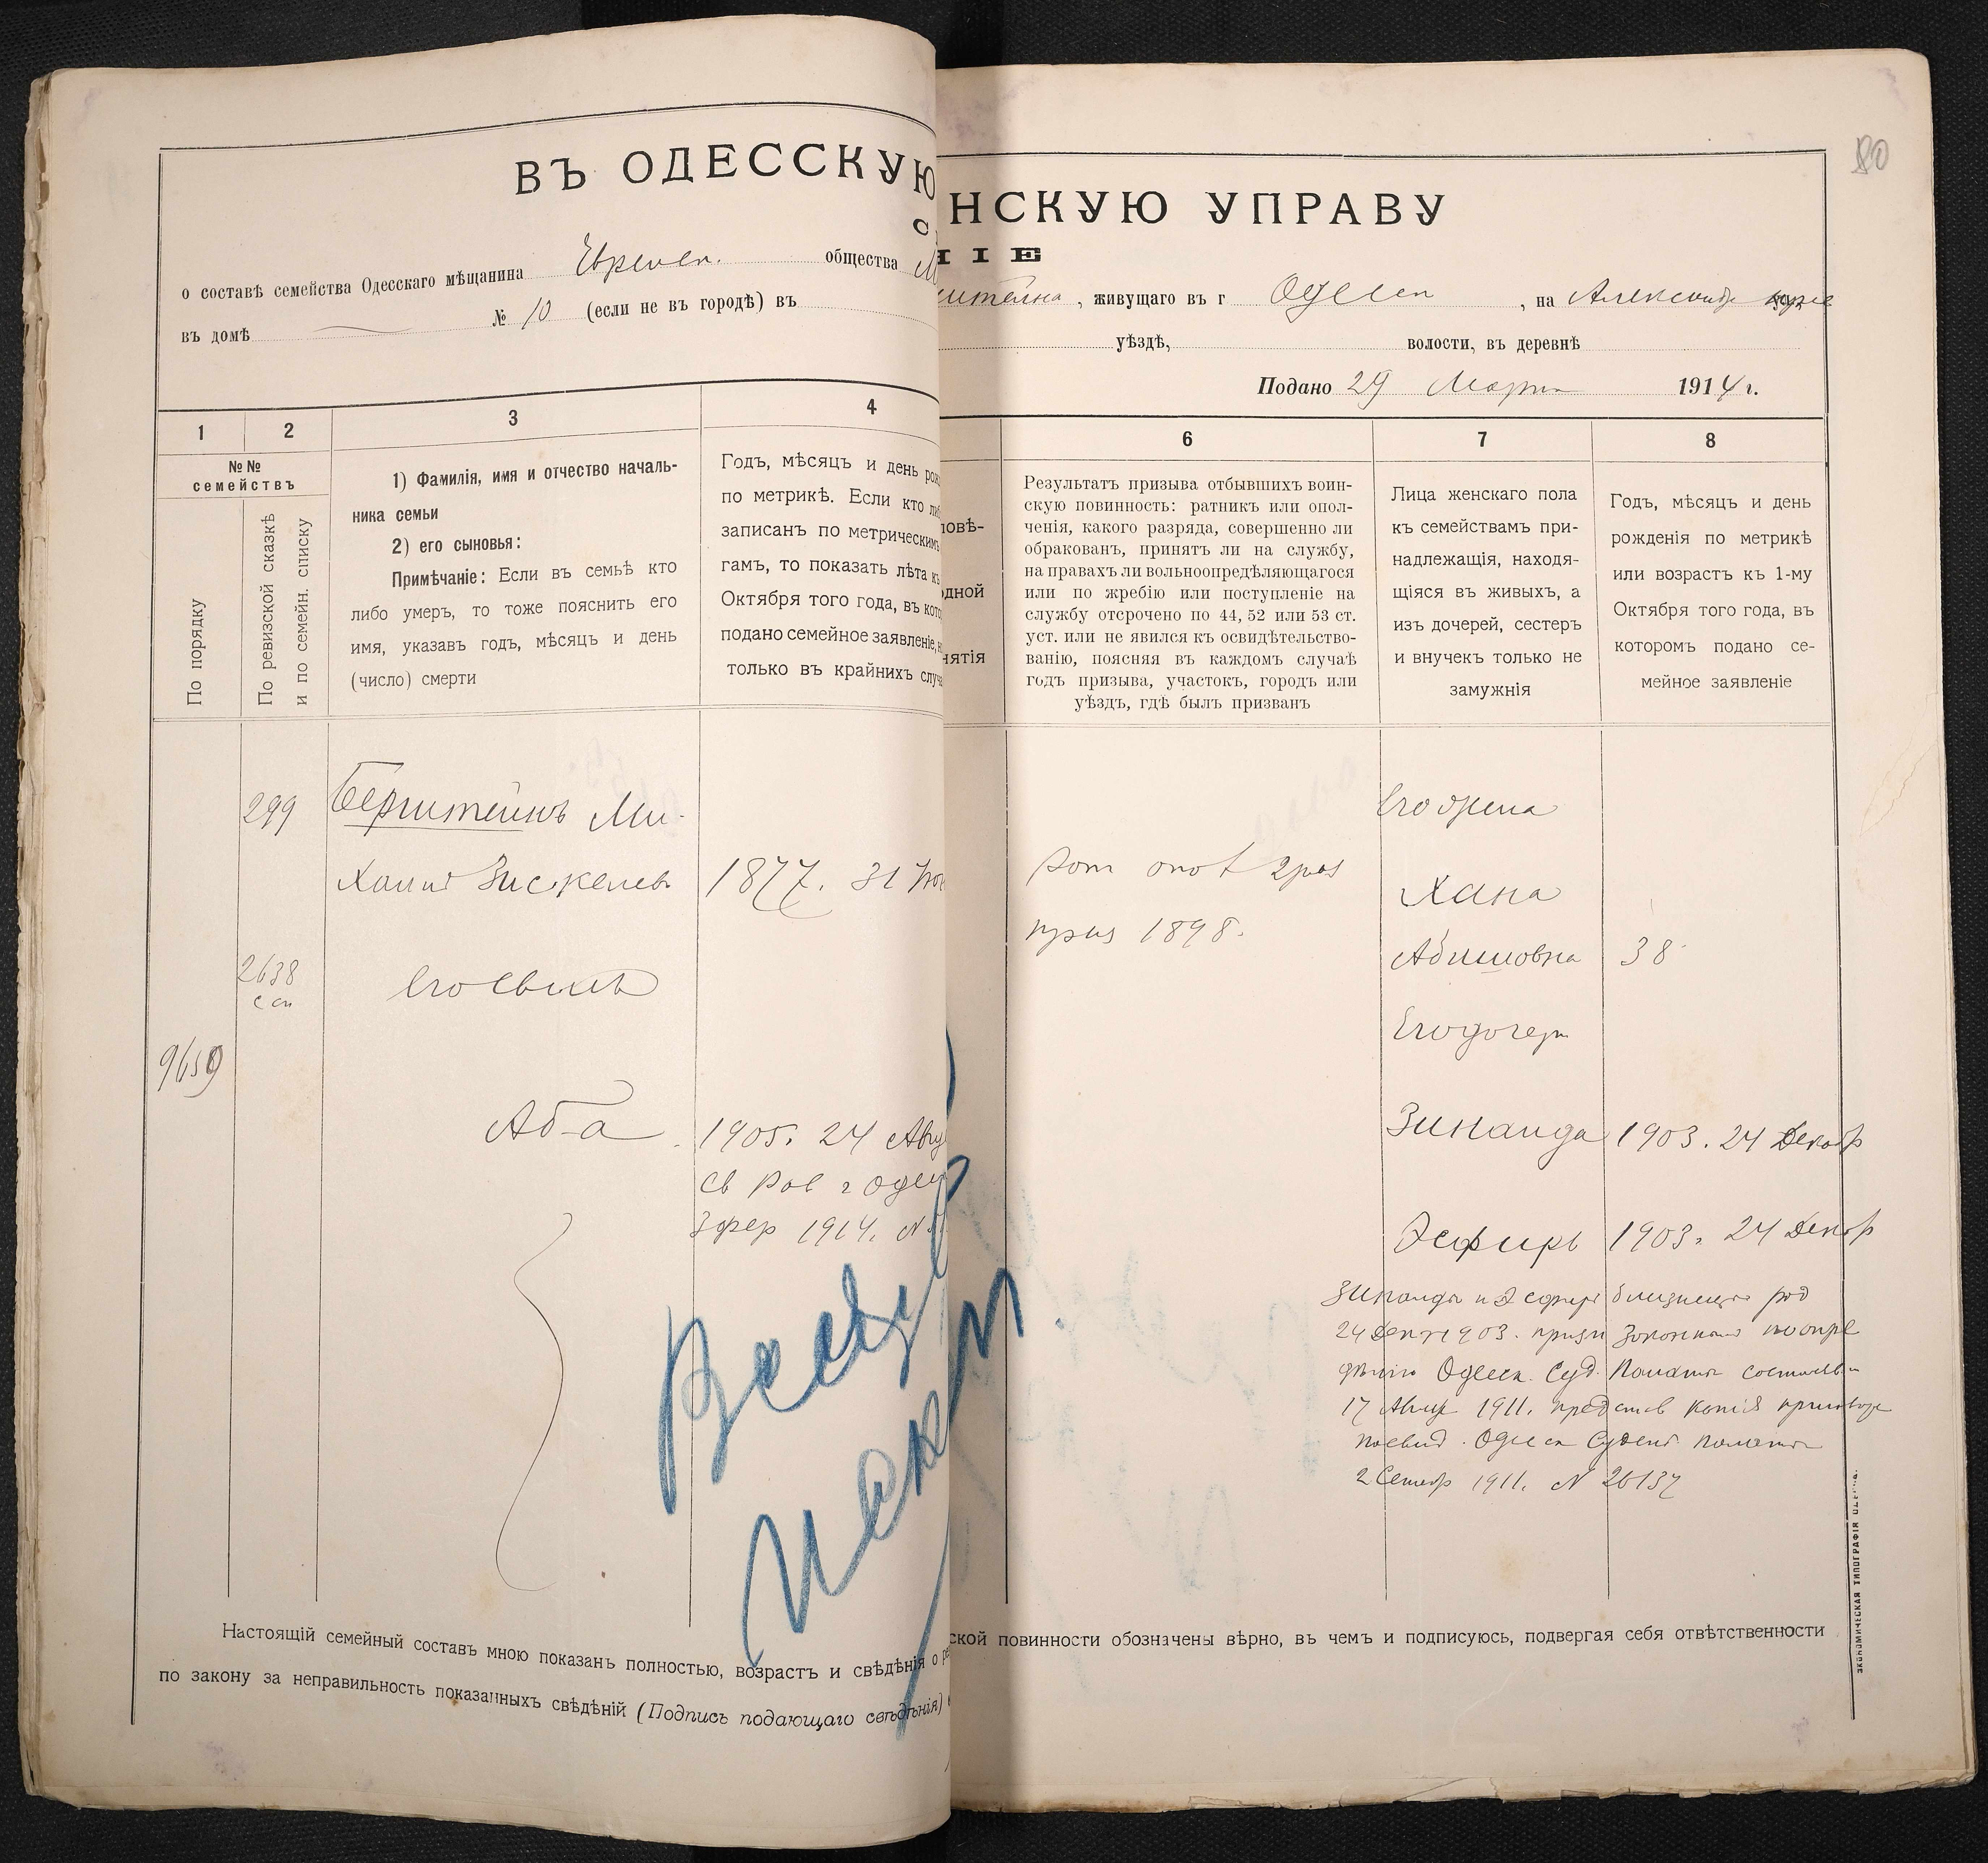 80
ВЪ ОДЕССКУЮ
НСКУЮ УПРАВУ
ІЕ
о составѣ семейства Одесскаго мѣщанина Еврейск. общества
, живущаго въ г Одессѣ , на Александр
въ домѣ № 10 (если не въ городѣ) въ
уѣздѣ, волости, въ деревнѣ
Подано 29 Марта 1914 г.
1 2 3 4
№№ семействъ
По порядку
По ревизской сказкѣ
и по семейн. списку
1) Фамилія, имя и отчество началь-
ника семьи
2) его сыновья:
Примѣчаніе: Если въ семьѣ кто
либо умеръ, то тоже пояснить его
имя, указавъ годъ, мѣсяцъ и день
(число) смерти
Годъ, мѣсяцъ и день рож
по метрикѣ. Если кто ли
записанъ по метрическимъ
гамъ, то показать лѣта къ
Октября того года, въ кото
подано семейное заявленіе, н
только въ крайнихъ случа
овѣ-
дной
нятія
6 7 8
Результатъ призыва отбывшихъ воин-
скую повинность: ратникъ или опол-
ченія, какого разряда, совершенно ли
обракованъ, принятъ ли на службу,
на правахъ ли вольноопредѣляющагося
или по жребію или поступленіе на
службу отсрочено по 44, 52 или 53 ст.
уст. или не явился къ освидѣтельство-
ванію, поясняя въ каждомъ случаѣ
годъ призыва, участокъ, городъ или
уѣздъ, гдѣ былъ призванъ
Лица женскаго пола
къ семействамъ при-
надлежащія, находя-
щіяся въ живыхъ, а
изъ дочерей, сестеръ
и внучекъ только не
замужнія
Годъ, мѣсяцъ и день
рожденія по метрикѣ
или возрастъ къ 1-му
Октября того года, въ
которомъ подано се-
мейное заявленіе
299 Бернштейнъ Ми-
хаилъ Зискелевъ 1877. 31
2638
с сп
Его сынъ
9659
Аба 1905. 24 Авгу
св Рав г Одес
3 фев 1914. №
Рат опол 2 раз
приз 1898.
Его жена
Хана
Абишовна 38
Его дочери
Зинаида 1903. 24 Декабр
Эсфирь 1903. 24 Декабр
Зинаида и Эсфирь близнецы род
24 Дек 1903. призн законными по опре
дѣлію Одесск. Суд. Палаты
17 Авг 1911. представ копія
Одесск Судебн Палаты
2 Сентбр 1911. № 26137
Настоящій семейный составъ мною показанъ полностью, возрастъ и свѣдѣнія о
ской повинности обозначены вѣрно, въ чемъ и подписуюсь, подвергая себя отвѣтственности
по закону за неправильность показанныхъ свѣдѣній (Подпись подающаго свѣдѣнія)
ЭКОНОМИЧЕСКАЯ ТИПОГРАФІЯ